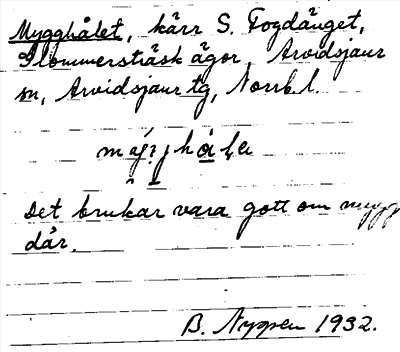 Mygghålet, kärr S. Fogdänget,
Glommersträsk ägor, Arvidsjaur
sn, Arvidsjaur tg, Norrb. l.
Det brukar vara gott om mygg
där.
B. Nyman 1932.